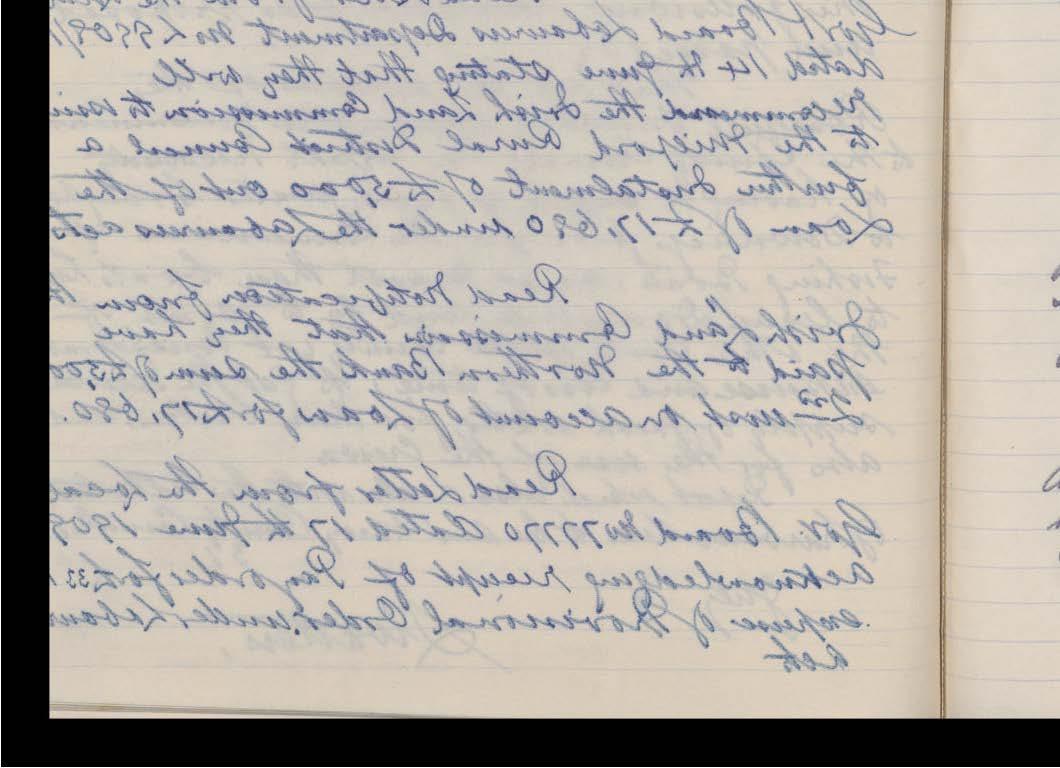 Govt Board Labourers Department No L 5509/1
dated 14th June stating that they will
recommend the Irish Land Commission to
to the Milford Rural District Council a
further Instalment of £5000 out of the
Loan of £17,680 under the Labourers acts
Read Notification from
Irish Land Commission that they have
paid to the Northern Bank the sum of £5,00
inst on account of Loan for £17,680.
Read Letter from the Local
Gov. Board No 77770 dated 17th June 1909
acknowledging receipt of Pay order for £33
expense of Provisional Order under Labour
Act